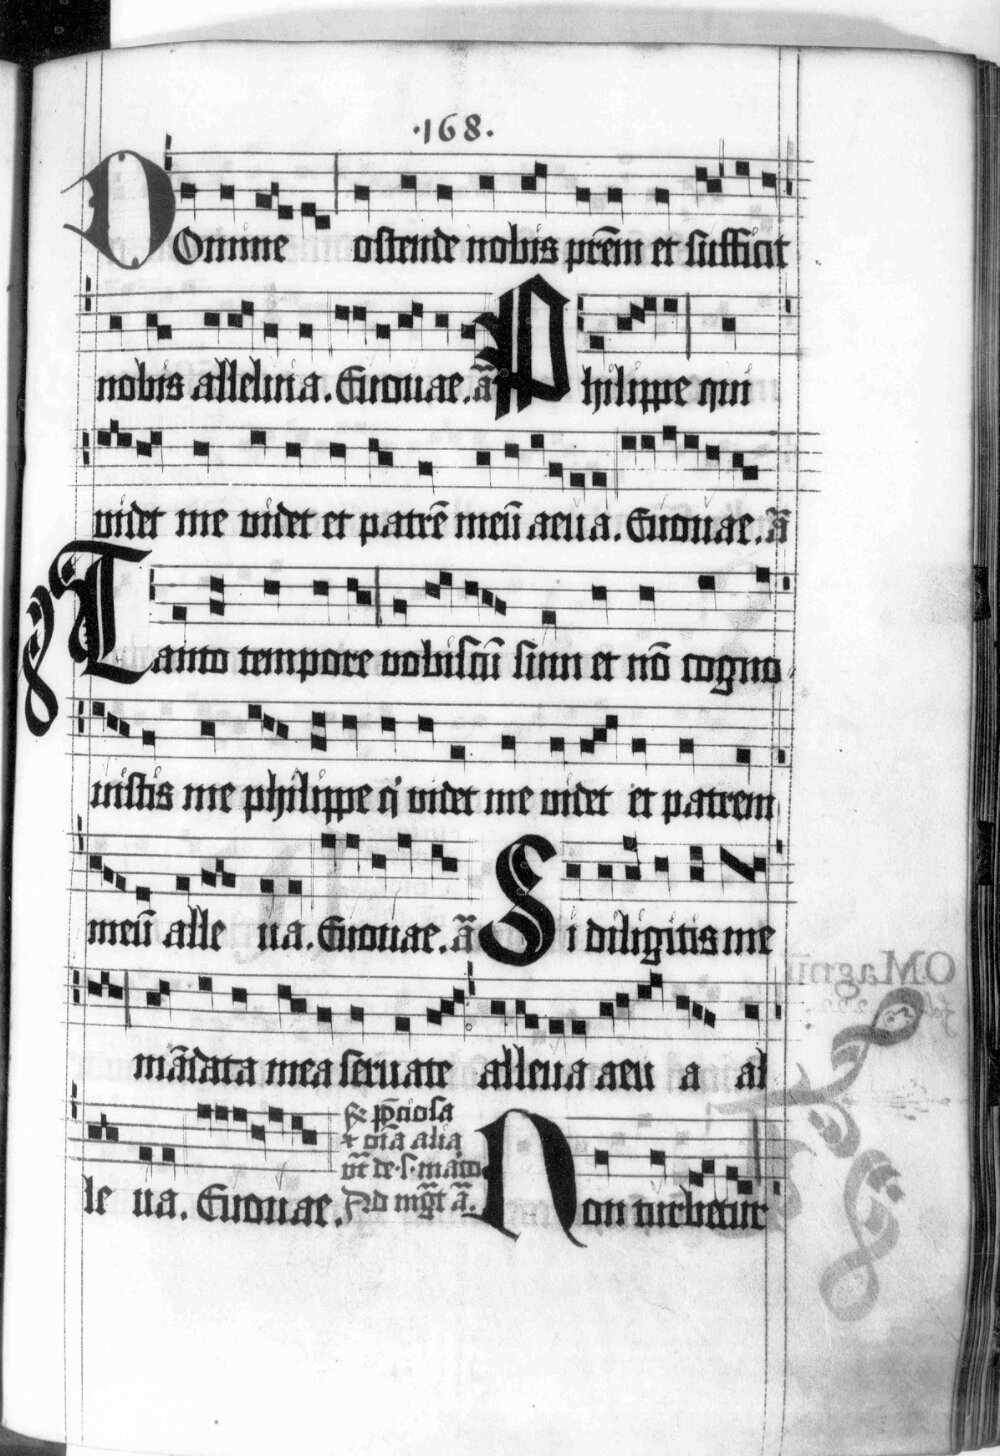 ·168·
Domine ostende nobis prēm et sufficit
nobis alleluia. Euouae. ā Philippe qui
videt me videt et patrē meū aeua. Euouae. ā
Tanto tempore vobiscū sum et nō cogno
uistis me philippe q̇ videt me videt et patrem
meū alle ua. Euouae. ā Si diligitis me
OMagnū
mādata mea seruate alleua aeu a al
le ua. Euouae. Ad mḡt ā. Non turbetur
℟ p̄ciosa
et oīa alia
vt de s. marco